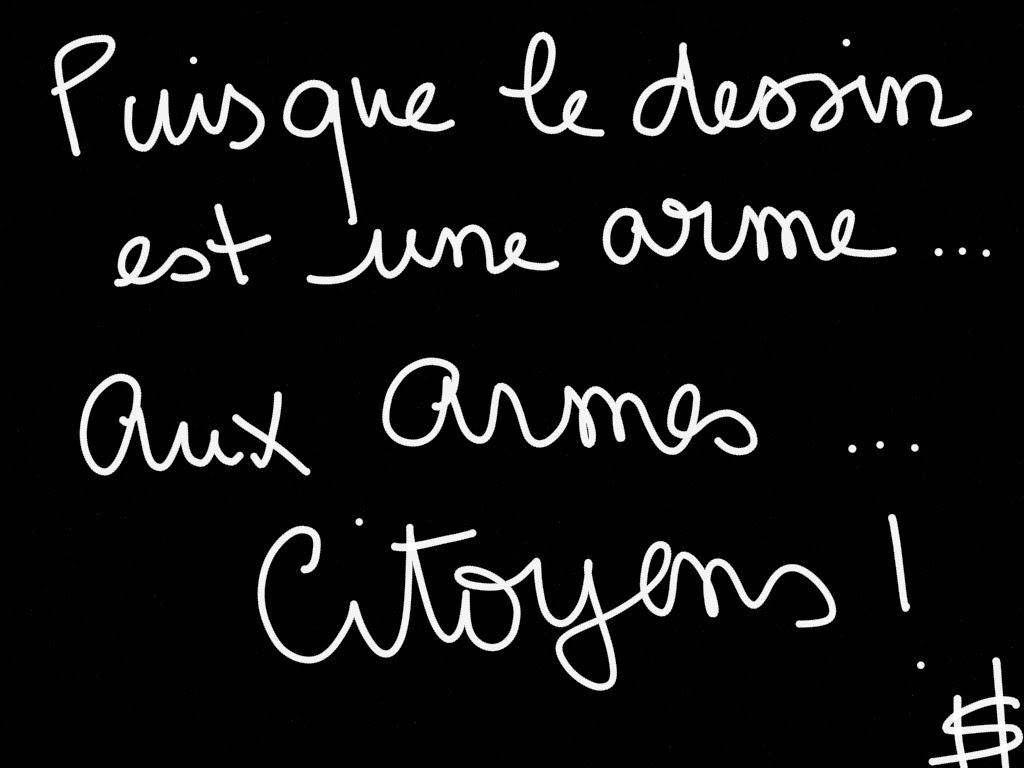 Puisque le dessin
est une arme...
Aux armes ...
Citoyens !